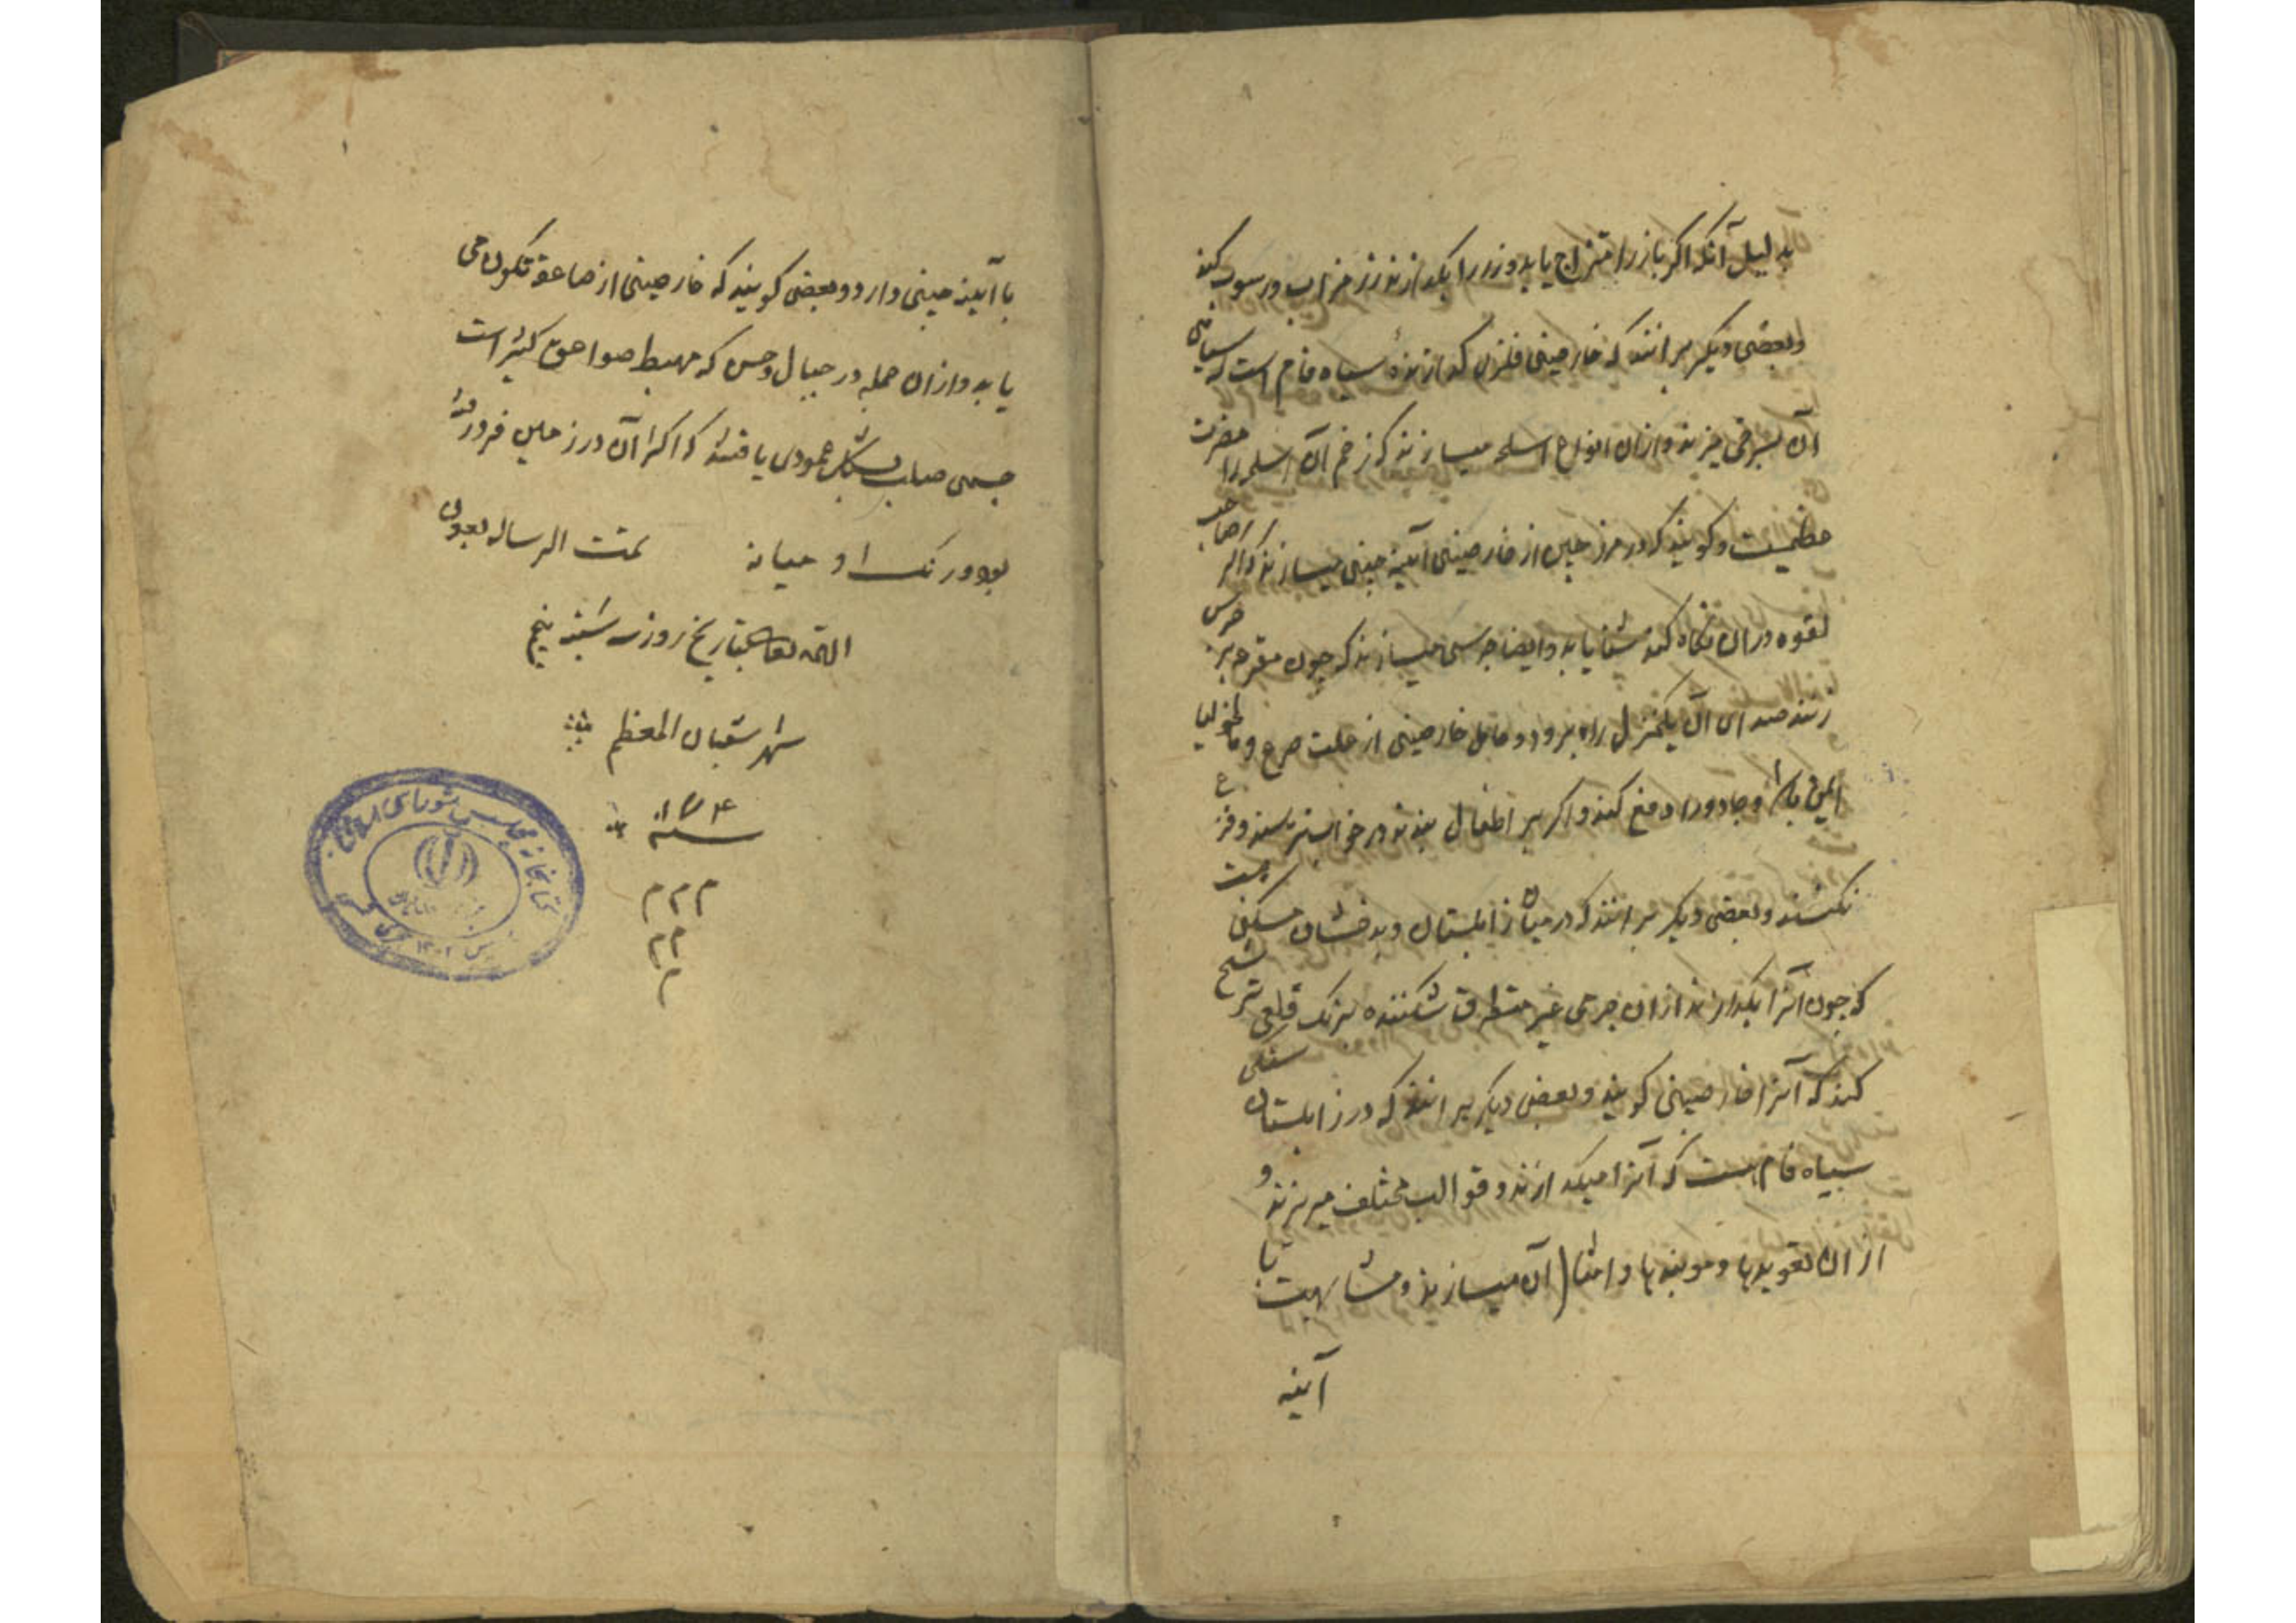 بدلیل آنکه اگر با زر امتزاج یابد و زر را بکدازند زر خراب و رسوب کند
و بعضی دیگر برانند که خارصینی فلزی کدازنده سیاه فام است که سیاهی
آن بسرخی میزند و ازان انواع اسلحه میسازند که زخم آن اسلحه را مضرت
عظیمست و کویند که در مرز چین از خارصینی آینه چینی میسازند که اگر صاحب
لقوه دران نکاه کند شفا یابد و ایضا جرسی میسازند که چون مقرعه بر جرس
زنند صدای آن یکمنزل راه برود و حامل خارصینی از علت صرع و مالخولیا
ایمن باشد و جادو را دفع کند و اگر بر اطفال بندند در خواب نترسند و فزع
نکنند و بعضی دیگر برانند که در میان زابلستان و بدخشان سنکی
که چون آنرا بکدازند ازان جرمی غیر متطرق شکننده برنک قلعی ترشح
کند که آنرا خارصینی کویند و بعضی دیگر برانند که در زابلستان سنکی
سیاه فام هست که آنرا میکدازند و قوالب مختلف میریزند و
ازان تعویذها و موبندها و امثال آن میسازند و مشابهت
آینه
با آینه چینی دارد و بعضی کویند که خارصینی از صاعقه تکون می
یابد و ازان جمله در جبال که مهبط صواعق کثیر است
جسمی صلب بشکل عمودی یافتند که اکثر آن در زمین فرو رفته
بود و رنک او میانه تمت الرساله بعون
الله تعالی بتاریخ روز سه شنبه پنجم
شهر شعبان المعظم
سنه
م م م
م م
م
کتابخانه مجلس شورای اسلامی